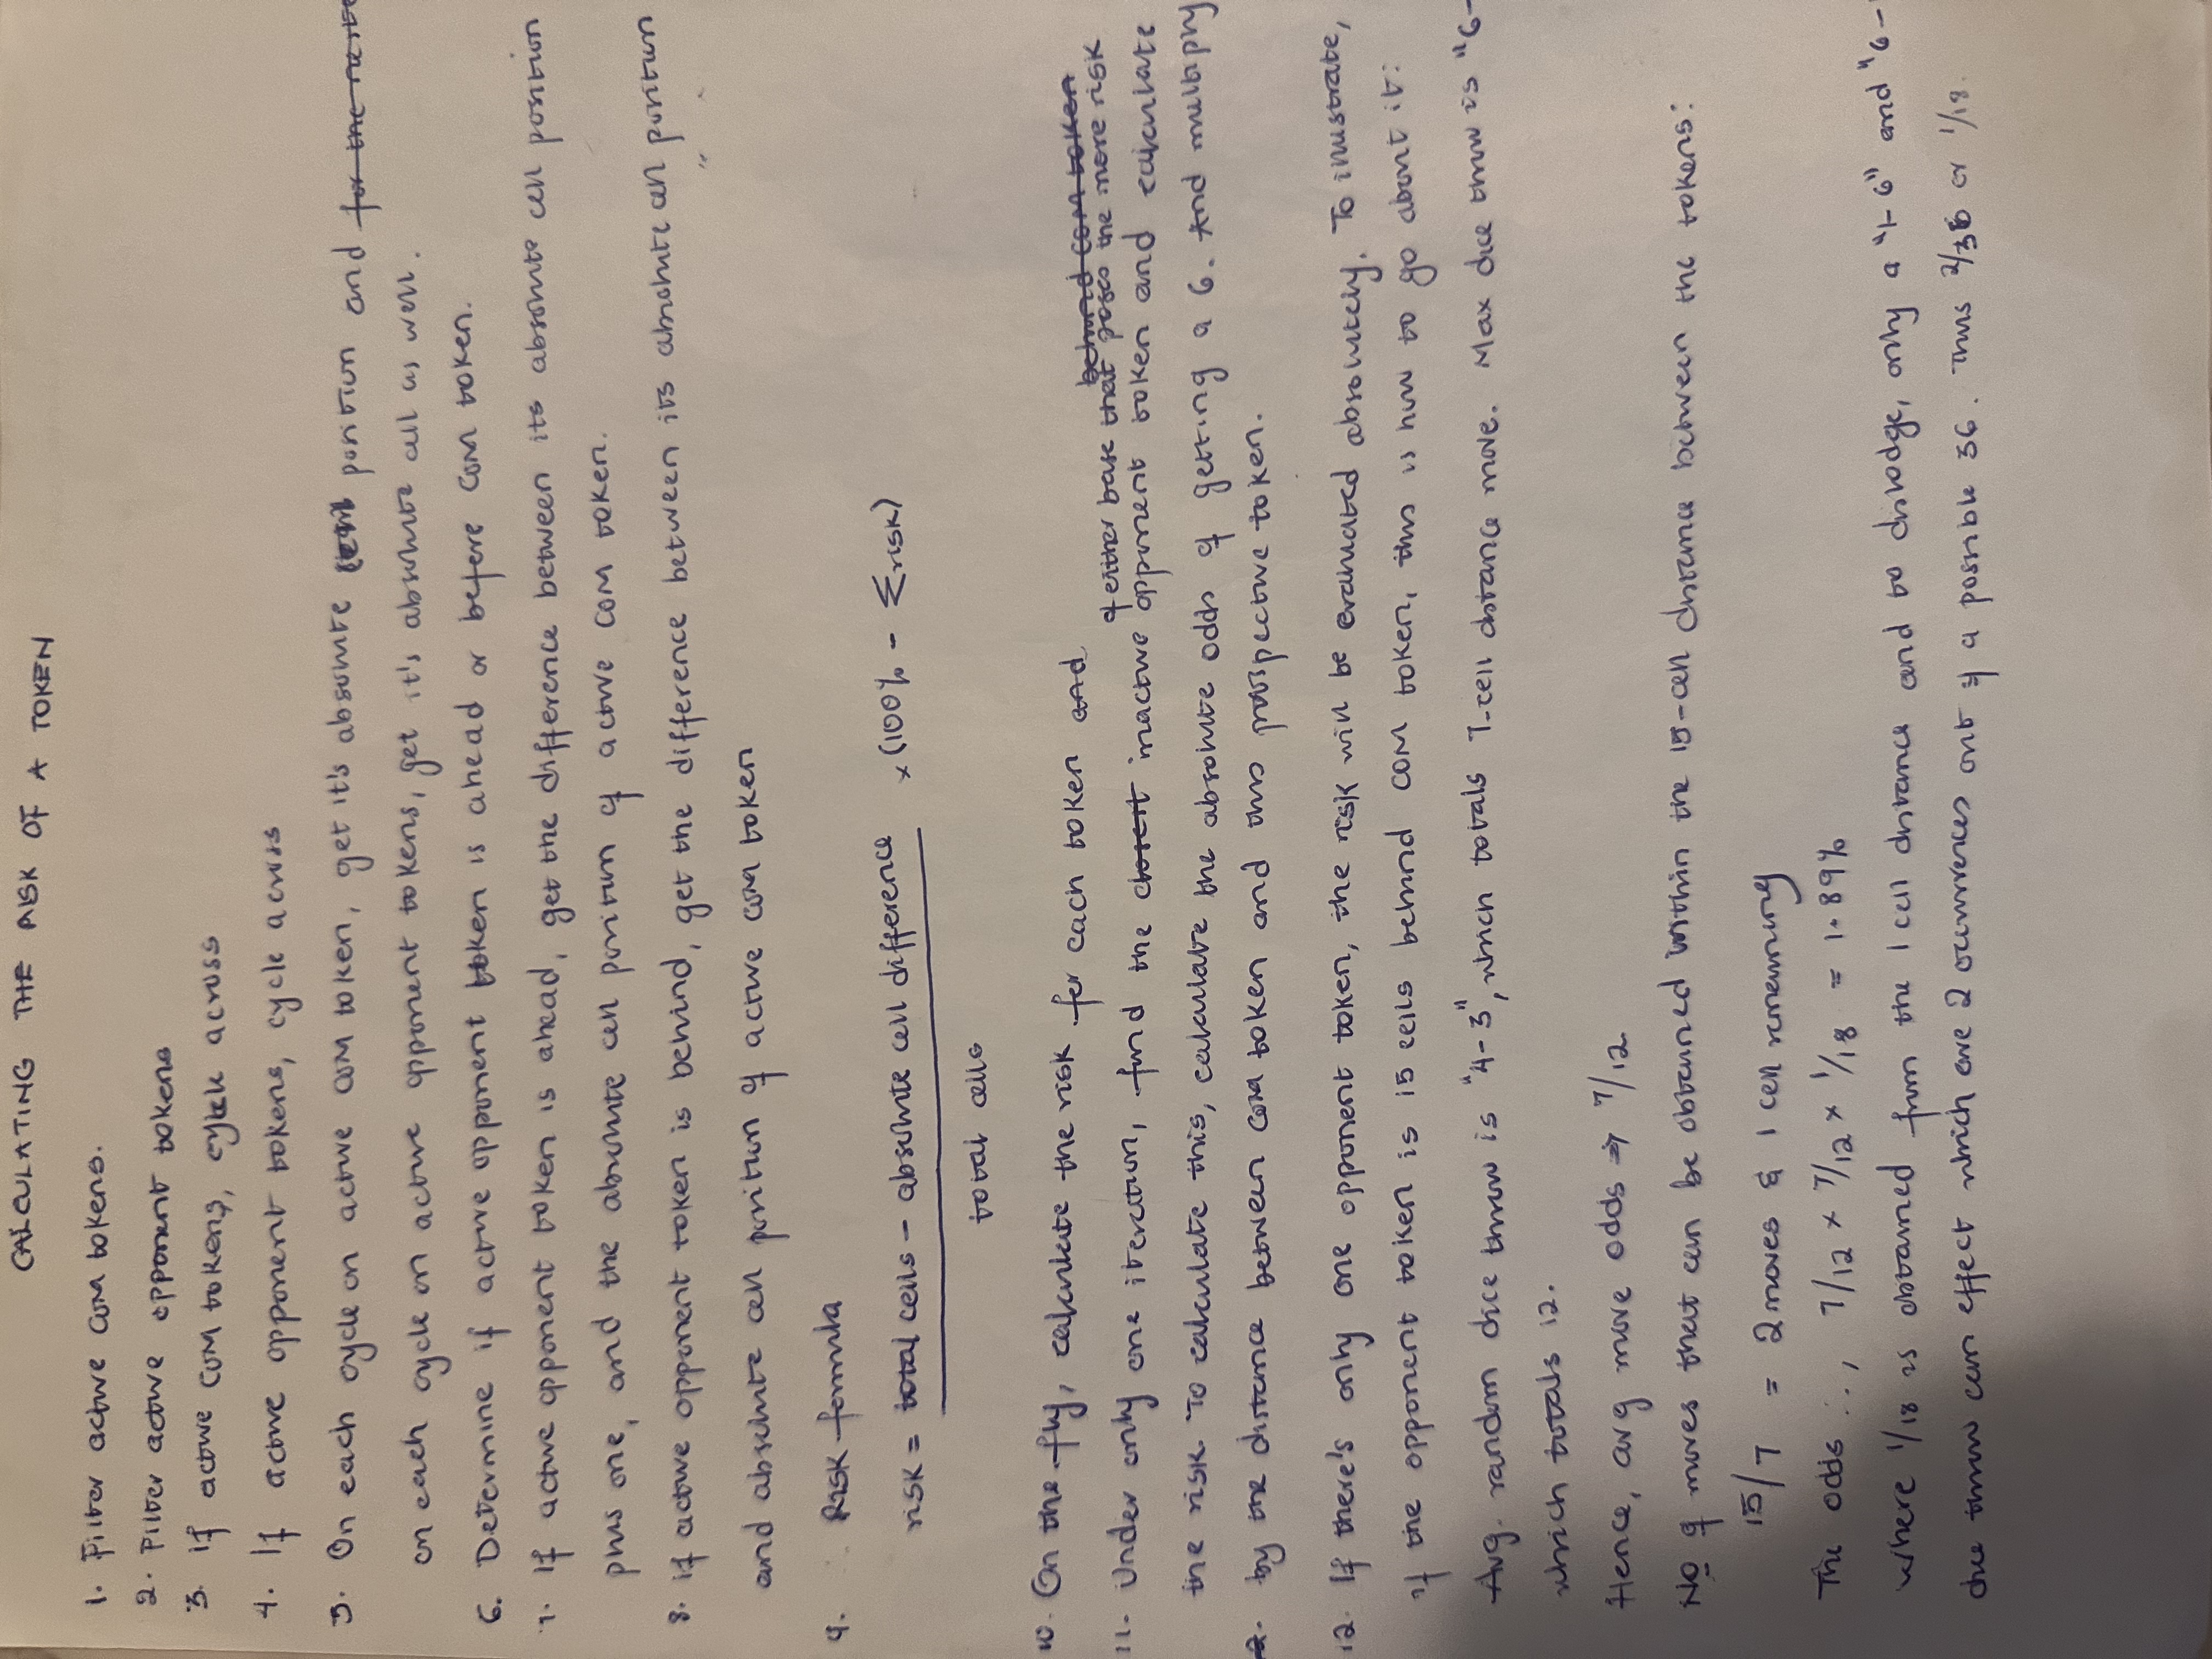 CALCULATING THE RISK OF A TOKEN
1. Filter active COM tokens.
2. Filter active opponent tokens
3. If active COM tokens, cycle across
4. If active opponent tokens, cycle across
5. On each cycle on active COM token, get it's absolute position and for the neste
on each cycle on active opponent tokens, get it's absolute cell as well.
6. Determine if active opponent token is ahead or before COM token.
7. If active opponent token is ahead, get the difference between its absolute cell position
plus one, and the absolute cell position of active COM token.
8. if active opponent token is behind, get the difference between its absolute cell position
and absolute cell position of active COM token
9. Risk formula
risk = total cells - absolute cell difference × (100% - Σrisk)
total cells
10. On the fly, calculate the risk for each token and
behind COM token
of either base that poses the more risk
11. Under only one iteration, find the closest inactive opponent token and calculate
the risk. To calculate this, calculate the absolute odds of getting a 6. And multiply
2. by the distance between COM token and this prospective token.
12. If there's only one opponent token, the risk will be evaluated absolutely. To illustrate,
if the opponent token is 15 cells behind COM token, this is how to go about it:
Avg. random dice throw is "4-3", which totals 7-cell distance move. Max dice throw is "6-
which totals 12.
Hence, avg move odds ⇒ 7/12
No of moves that can be obtained within the 15-cell distance between the tokens:
15/7 = 2 moves & 1 cell remaining
The odds ∴, 7/12 × 7/12 × 1/18 = 1.89%
Where 1/18 is obtained from the 1 cell distance and to dislodge, only a "1-6" and "6-
dice throw can effect which are 2 occurrences out of a possible 36. Thus 2/36 or 1/18.